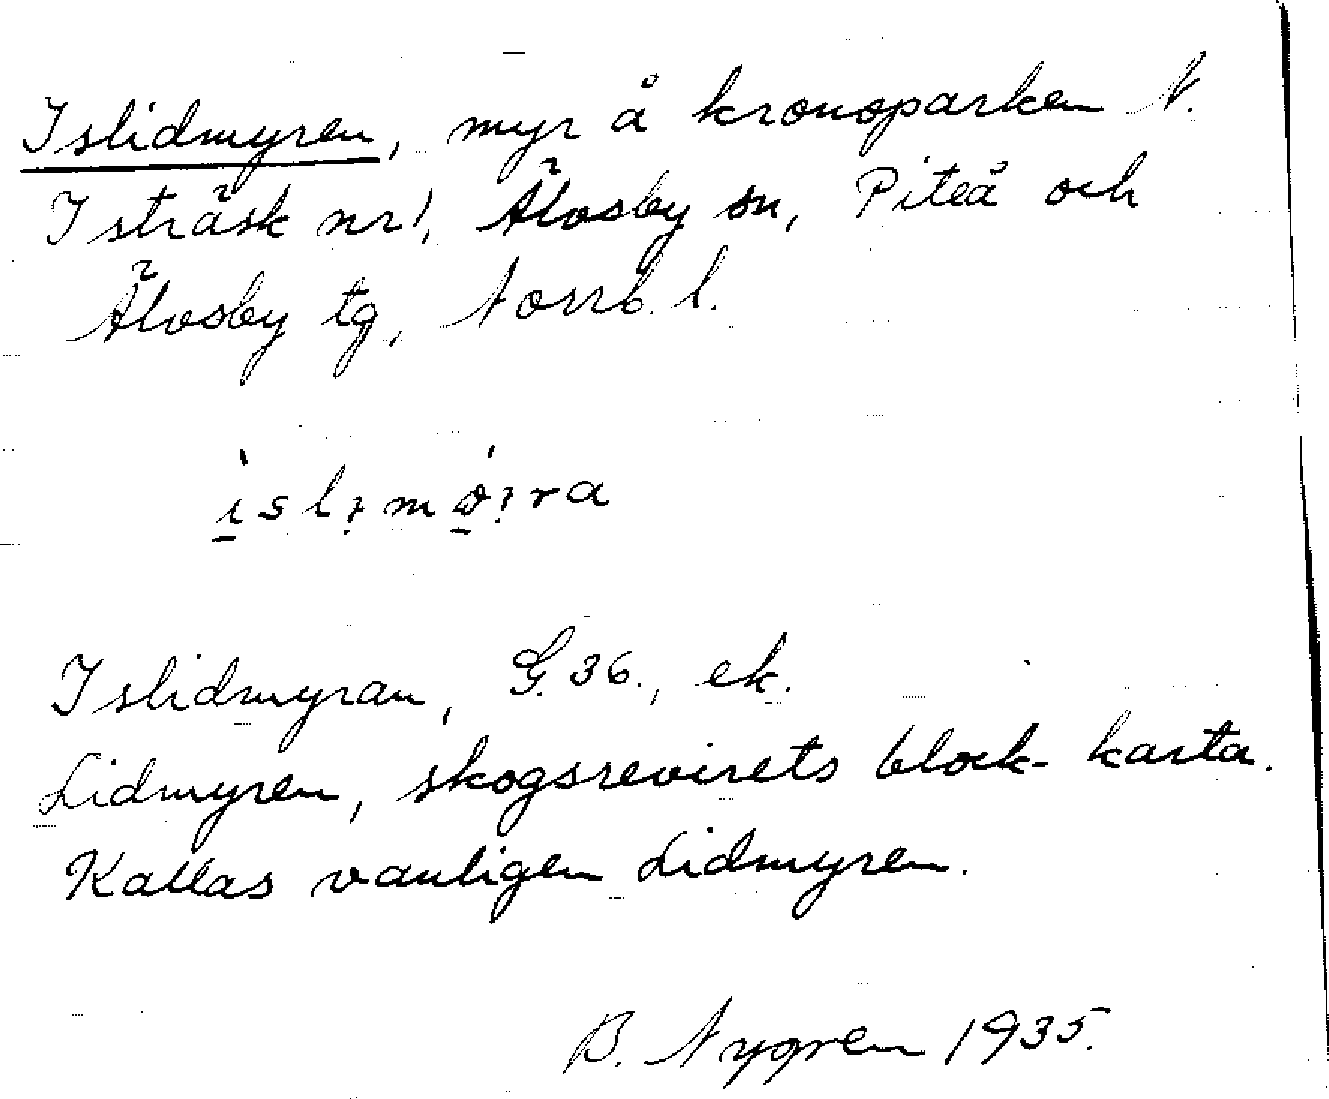 Islidmyren, myr å kronoparken N.
Isträsk nr 1, Älvsby sn, Piteå och
Älvsby tg, Norrb. l.
Islidmyran, G. 36., ek.
Lidmyren, skogsrevirets block-karta.
Kallas vanligen Lidmyren.
B. Nygren 1935.